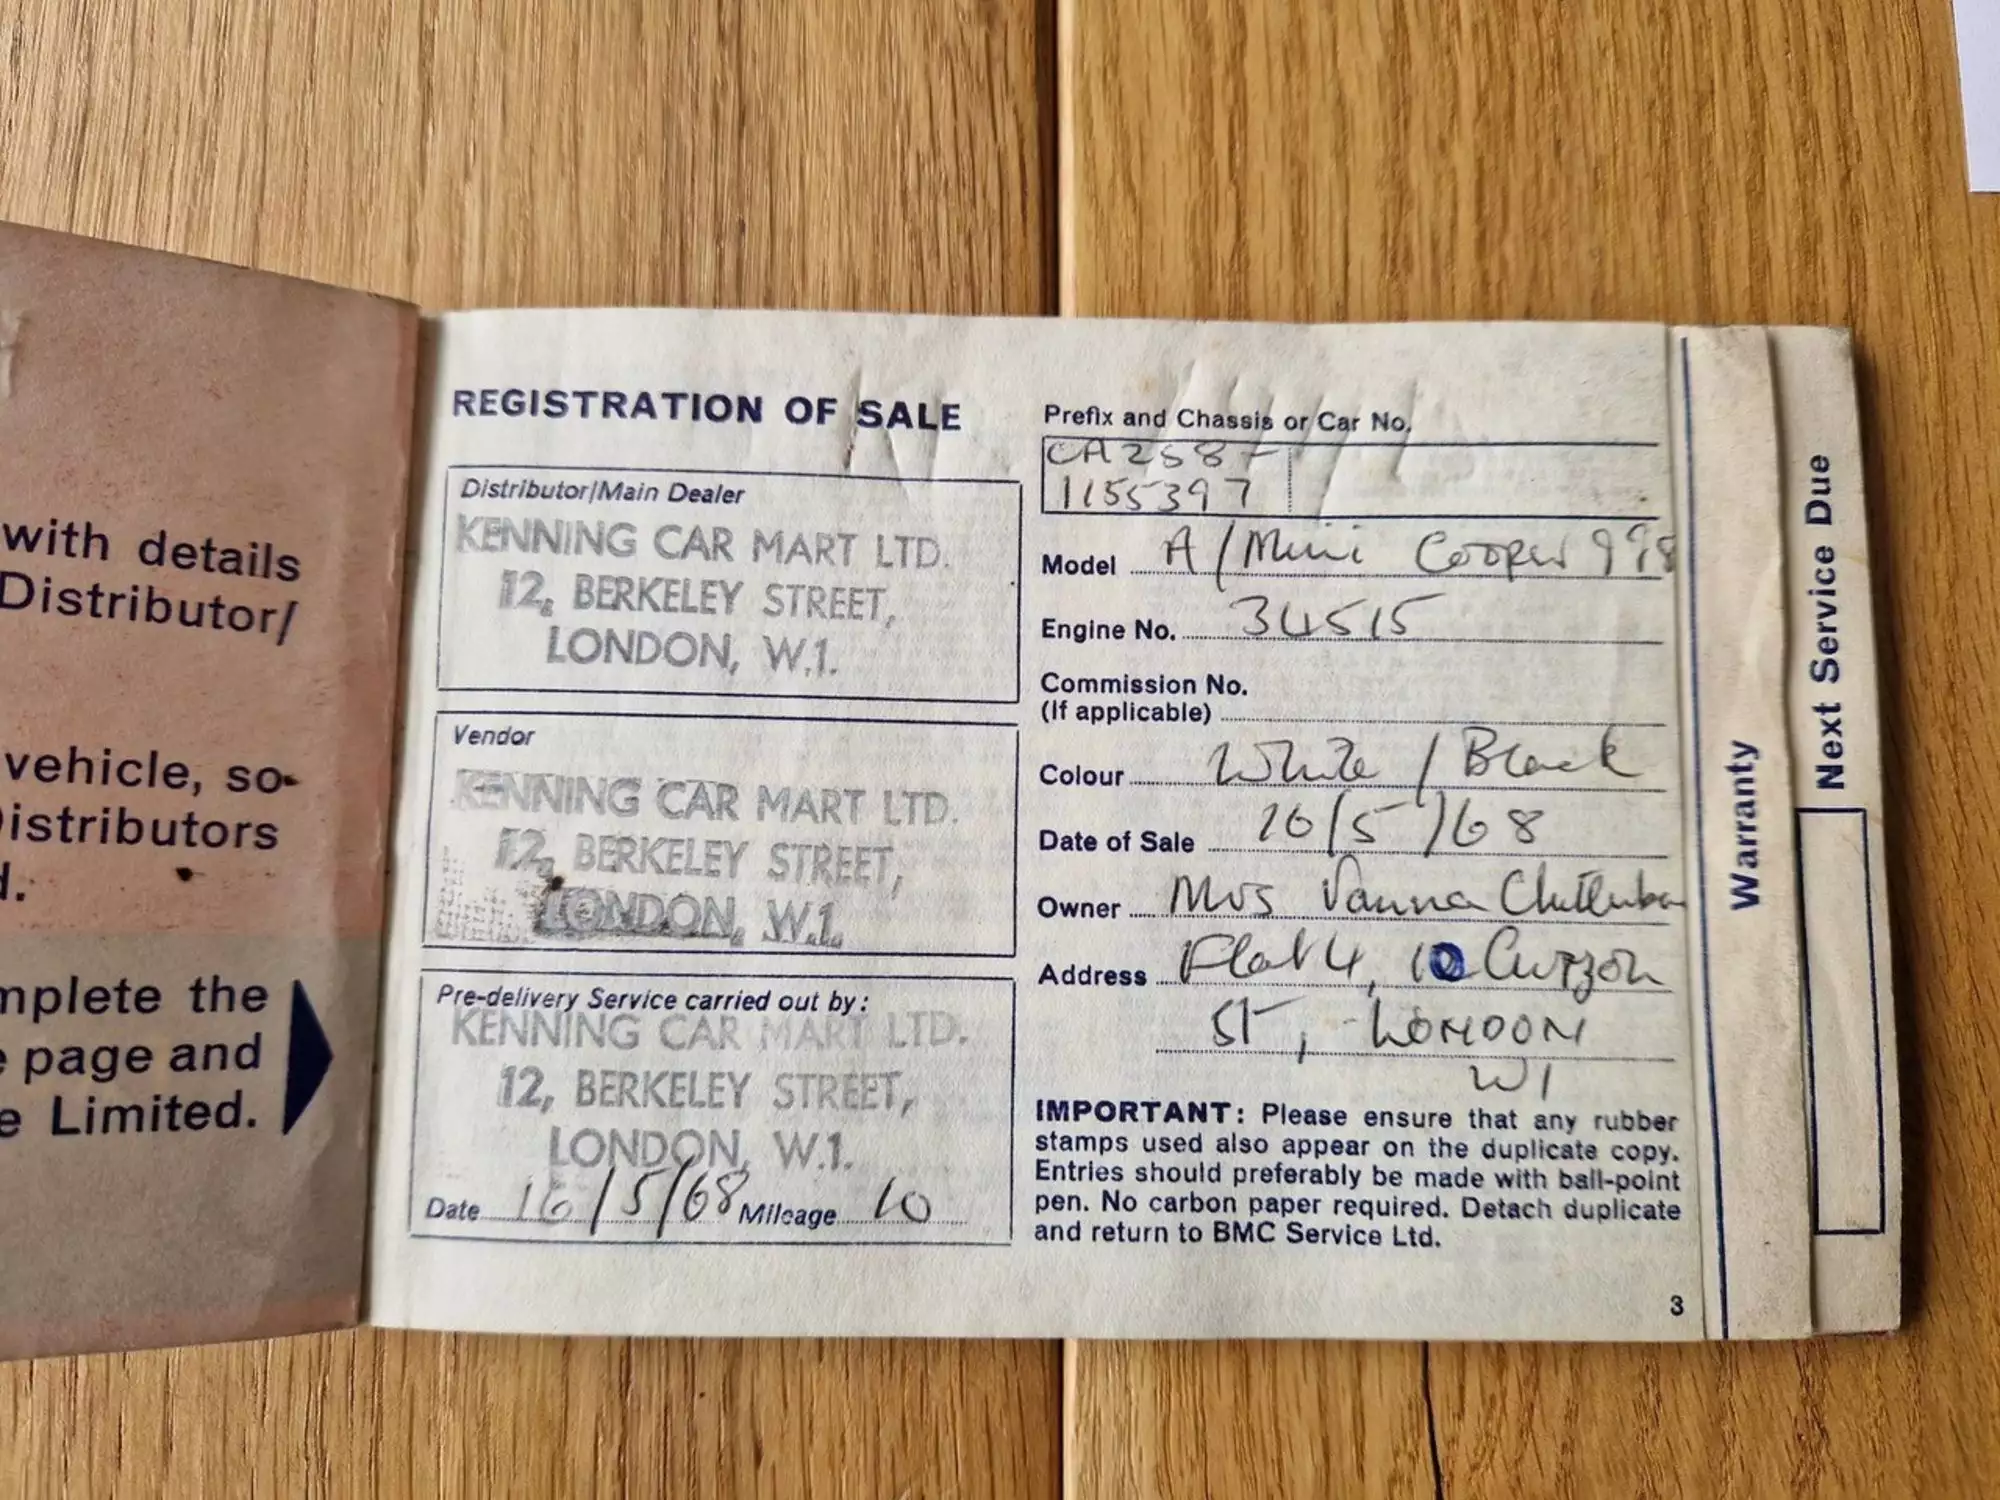 with details
Distributor/
vehicle, so
istributors
d.
mplete the
e page and
e Limited.
REGISTRATION OF SALE
Distributor/Main Dealer
KENNING CAR MART LTD.
12, BERKELEY STREET,
LONDON, W.1.
Vendor
KENNING CAR MART LTD.
12, BERKELEY STREET,
LONDON, W.1.
Pre-delivery Service carried out by:
KENNING CAR MART LTD.
12, BERKELEY STREET,
LONDON, W.1.
Date 16/5/68 Mileage 10
Prefix and Chassis or Car No.
CA2S87
1155397
Model A/Mini Cooper 998
Engine No. 34515
Commission No.
(If applicable)
Colour White / Black
Date of Sale 16/5/68
Owner Mrs Vanna
Address Flat 4, 10 Curzon
St, LONDON
W1
IMPORTANT: Please ensure that any rubber
stamps used also appear on the duplicate copy.
Entries should preferably be made with ball-point
pen. No carbon paper required. Detach duplicate
and return to BMC Service Ltd.
3
Warranty
Next Service Due